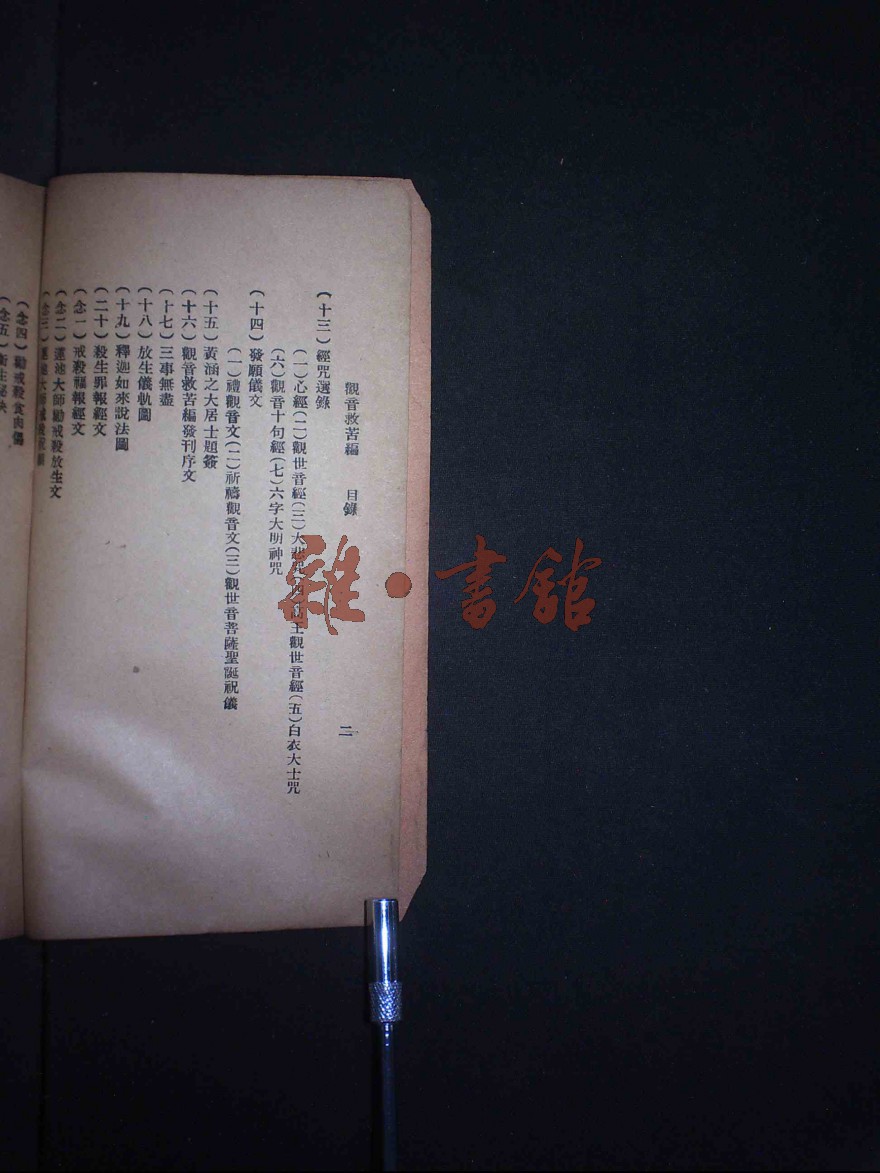 觀音救苦編　目錄　二
(十三)經咒選錄
(一)心經(二)觀世音經(三)大悲咒(四)高王觀世音經(五)白衣大士咒
(六)觀音十句經(七)六字大明神咒
(十四)發願儀文
(一)禮觀音文(二)祈禱觀音文(三)觀世音菩薩聖誕祝儀
(十五)黃涵之大居士題簽
(十六)觀音救苦編發刊序文
(十七)三事無盡
(十八)放生儀軌圖
(十九)釋迦如來說法圖
(二十)殺生罪報經文
(念一)戒殺福報經文
(念二)蓮池大師勸戒殺放生文
(念三)蓮池大師
(念四)勸戒殺食肉偈
(念五)衛生秘訣
雜·書館